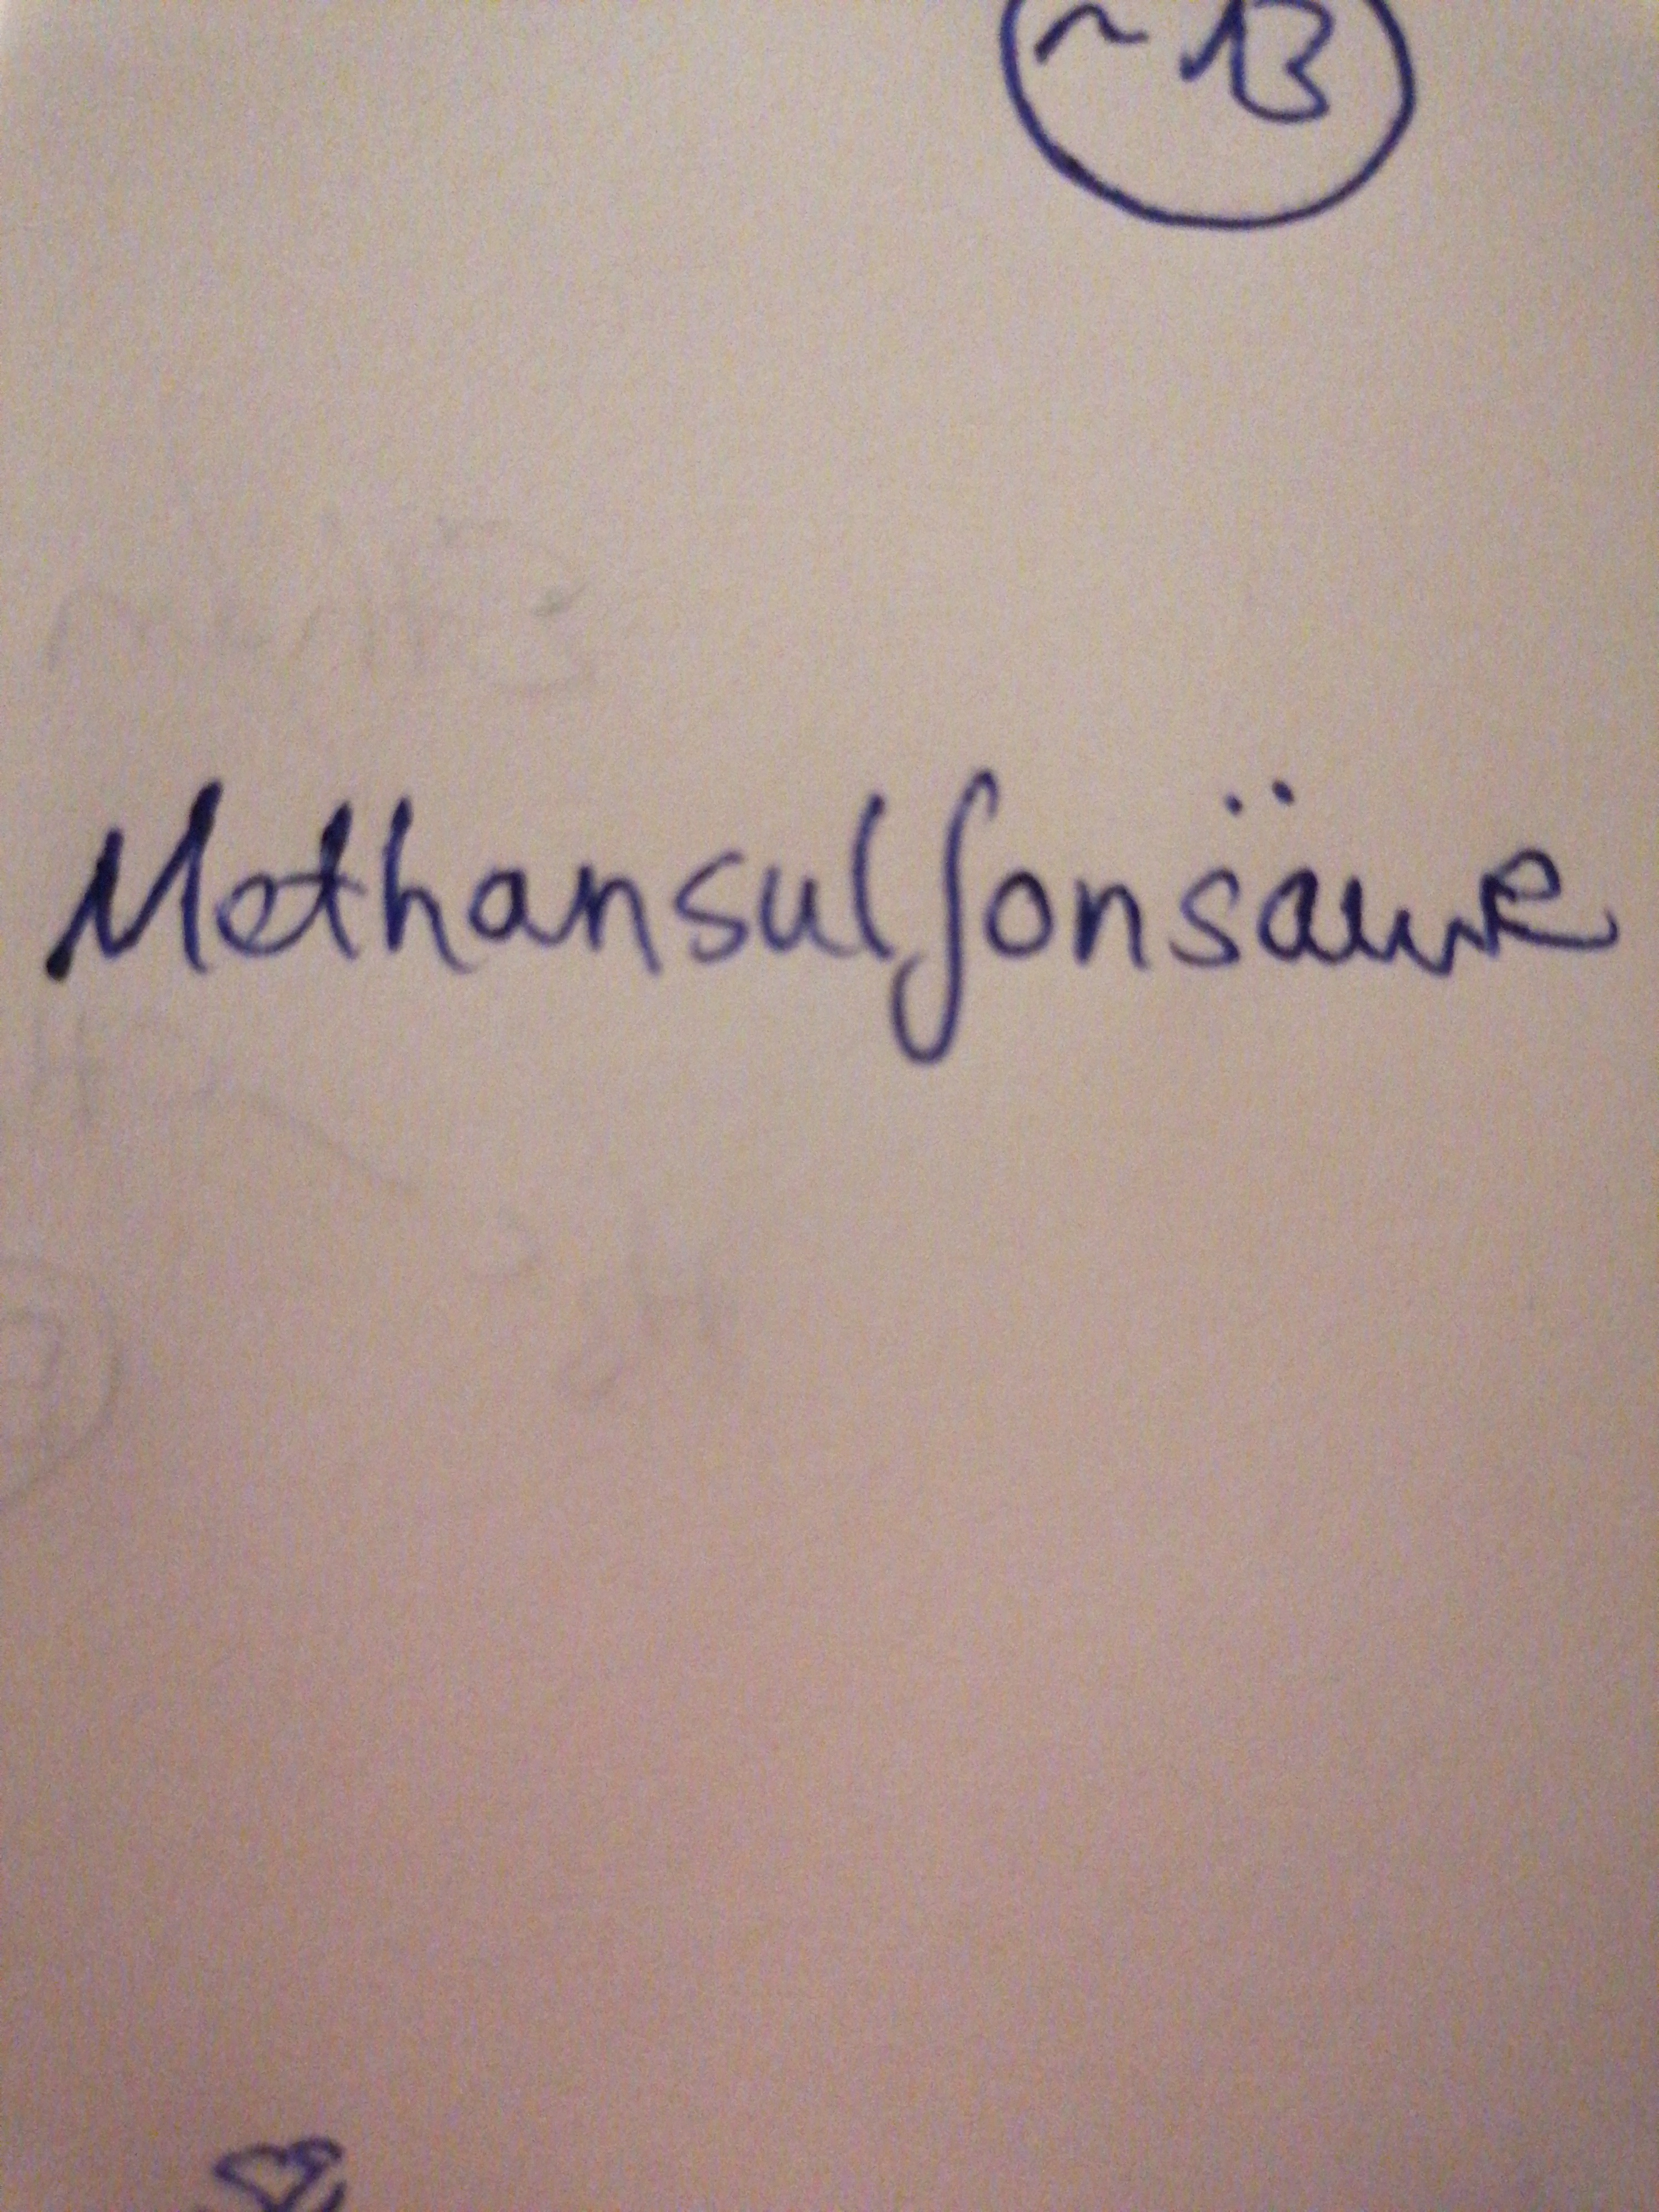 ~ 13
Methansulfonsäure